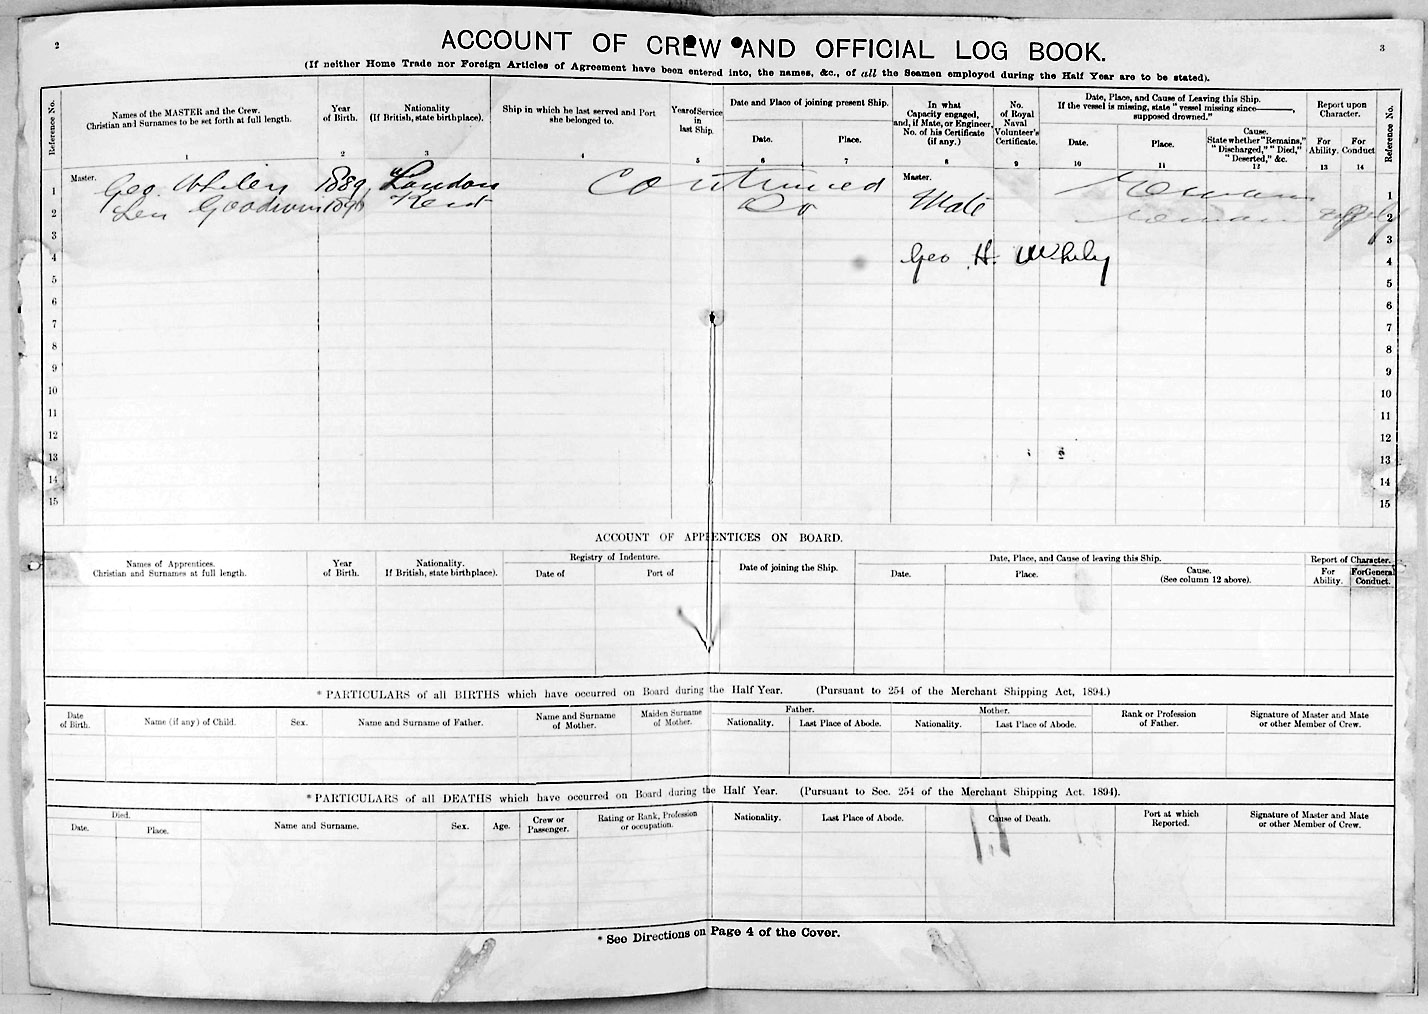 2
3
ACCOUNT OF CREW AND OFFICIAL LOG BOOK.
(If neither Home Trade nor Foreign Articles of Agreement have been entered into, the names, &c., of all the Seamen employed during the Half Year are to be stated).
Reference No.
Names of the MASTER and the Crew.
Christian and Surnames to be set forth at full length.
1
Year
of Birth.
2
Nationality
(If British, state birthplace).
3
Ship in which he last served and Port
she belonged to.
4
Year of Service
in
last Ship.
5
Date and Place of joining present Ship.
Date.
6
Place.
7
In what
Capacity engaged,
and, if Mate, or Engineer,
No. of his Certificate
(if any.)
8
No.
of Royal
Naval
Volunteer's
Certificate.
9
Date, Place, and Cause of Leaving this Ship.
If the vessel is missing, state "vessel missing since———,
supposed drowned."
Date.
10
Place.
11
Cause.
State whether "Remains,"
"Discharged," "Died,"
"Deserted," &c.
12
Report upon
Character.
For
Ability.
13
For
Conduct
14
Reference No.
1 Master. Geo Whiley 1889 London Continued Master. Remains 1
2 Len Goodwin Kent Do Mate Remains 2
3 3
4 Geo H. Whiley 4
5 5
6 6
7 7
8 8
9 9
10 10
11 11
12 12
13 13
14 14
15 15
ACCOUNT OF APPRENTICES ON BOARD.
Names of Apprentices.
Christian and Surnames at full length.
Year
of Birth.
Nationality.
If British, state birthplace).
Registry of Indenture.
Date of
Port of
Date of joining the Ship.
Date, Place, and Cause of leaving this Ship.
Date.
Place.
Cause.
(See column 12 above).
Report of Character.
For
Ability.
For General
Conduct.
* PARTICULARS of all BIRTHS which have occurred on Board during the Half Year. (Pursuant to 254 of the Merchant Shipping Act, 1894.)
Date
of Birth.
Name (if any) of Child.
Sex.
Name and Surname of Father.
Name and Surname
of Mother.
Maiden Surname
of Mother.
Father.
Nationality.
Last Place of Abode.
Mother.
Nationality.
Last Place of Abode.
Rank or Profession
of Father.
Signature of Master and Mate
or other Member of Crew.
* PARTICULARS of all DEATHS which have occurred on Board during the Half Year. (Pursuant to Sec. 254 of the Merchant Shipping Act. 1894).
Died.
Date.
Place.
Name and Surname.
Sex.
Age.
Crew or
Passenger.
Rating or Rank, Profession
or occupation.
Nationality.
Last Place of Abode.
Cause of Death.
Port at which
Reported.
Signature of Master and Mate
or other Member of Crew.
* See Directions on Page 4 of the Cover.